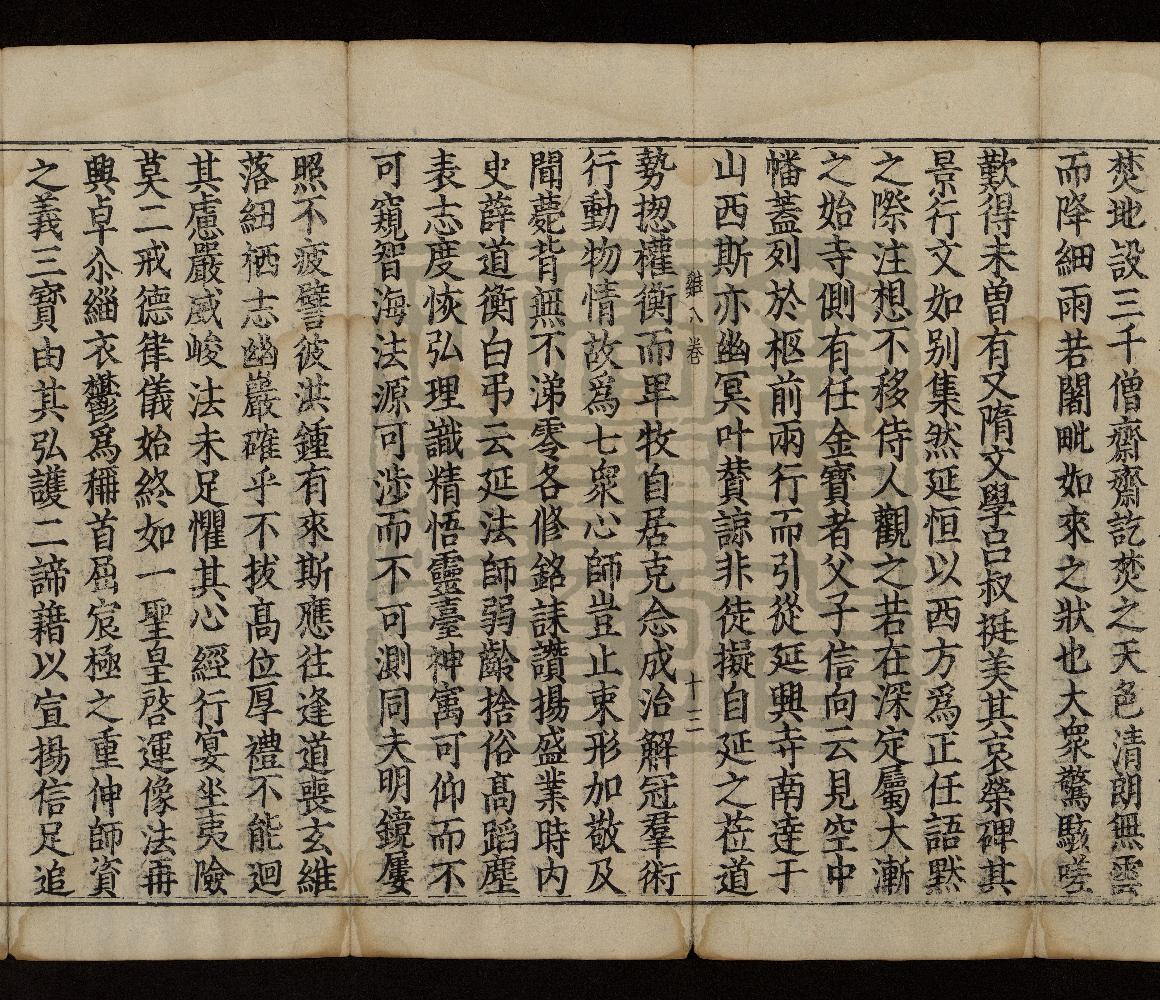 焚地設三千僧齋齋訖焚之天色清朗無雲
而降細雨若闍毗如來之狀也大衆驚駭嗟
歎得未曾有又隋文學呂叔挺美其哀榮碑其
景行文如别集然延恒以西方爲正任語默
之際注想不移侍人觀之若在深定屬大漸
之始寺側有任金寶者父子信向云見空中
幡蓋列於柩前兩行而引從延興寺南達于
山西斯亦幽冥叶賛諒非徒擬自延之莅道
雞八 卷 十三
勢揔權衡而卑牧自居克念成治解冠羣術
行動物情故爲七衆心師豈止束形加敬及
聞薨背無不涕零各修銘誄讚揚盛業時内
史薛道衡白弔云延法師弱齡捨俗高蹈塵
表志度恢弘理識精悟靈臺神寓可仰而不
可窺智海法源可涉而不可測同夫明鏡屢
照不疲譬彼洪鍾有來斯應往逢道喪玄維
落紐栖志幽巖確乎不拔高位厚禮不能迴
其慮嚴威峻法未足懼其心經行宴坐夷險
莫二戒德律儀始終如一聖皇啓運像法再
興卓尒緇衣欝爲稱首屈宸極之重伸師資
之義三寶由其弘護二諦藉以宣揚信足追